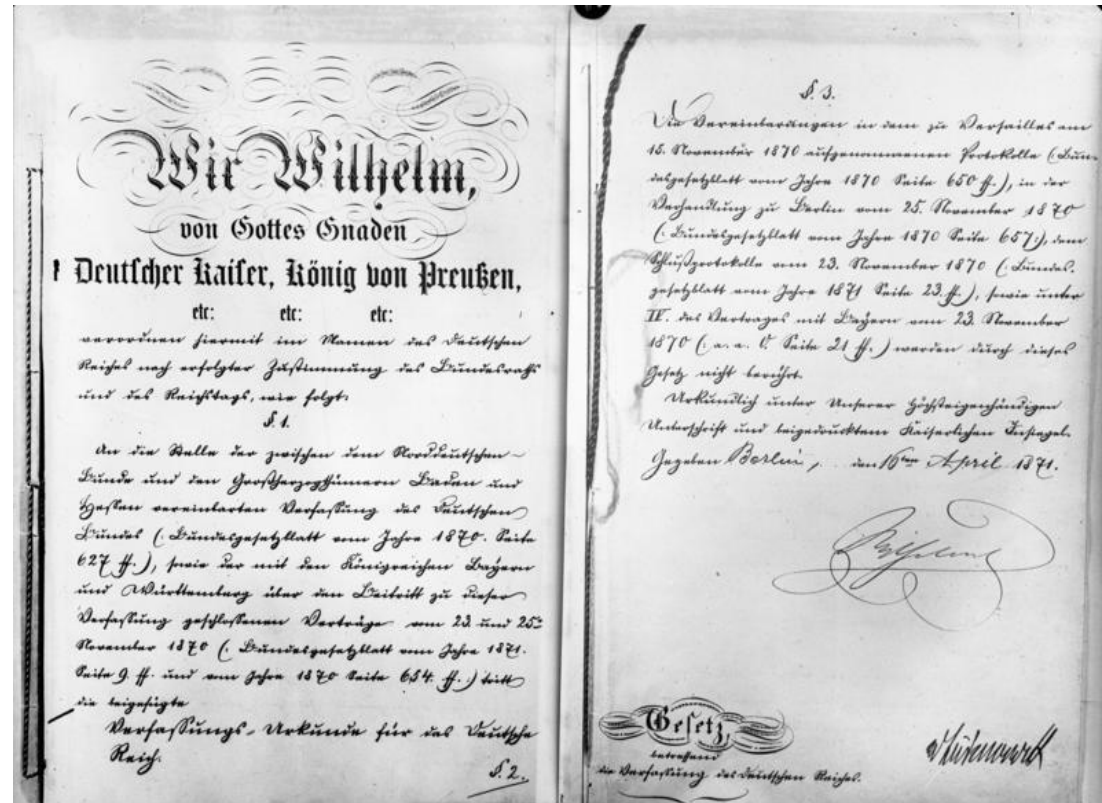 Wir Wilhelm,
von Gottes Gnaden
Deutscher Kaiser, König von Preußen,
etc: etc: etc:
verordnen hiermit im Namen des Deutschen
Reiches nach erfolgter Zustimmung des Bundesraths
und des Reichstags, wie folgt:
§. 1.
An die Stelle der zwischen dem Norddeutschen
Bunde und den Großherzogthümern Baden und
Hessen vereinbarten Verfassung des Deutschen
Bundes (: Bundesgesetzblatt vom Jahre 1870. Seite
627 ff.), sowie der mit den Königreichen Bayern
und Württemberg über den Beitritt zu dieser
Verfassung geschlossenen Verträge vom 23. und 25ten
November 1870 (: Bundesgesetzblatt vom Jahre 1871.
Seite 9. ff. und vom Jahre 1870 Seite 654. ff.:) tritt
die beigefügte
Verfassungs-Urkunde für das Deutsche
Reich.
§. 2.
§. 3.
Die Vereinbarungen in dem zu Versailles am
15. November 1870 aufgenommenen Protokolle (: Bun-
desgesetzblatt vom Jahre 1870 Seite 650 ff.), in der
Verhandlung zu Berlin vom 25. November 1870
(: Bundesgesetzblatt vom Jahre 1870 Seite 657:), dem
Schlußprotokolle vom 23. November 1870 (: Bundes-
gesetzblatt vom Jahre 1871 Seite 23. ff.), sowie unter
IV. des Vertrages mit Bayern vom 23. November
1870 (: a. a. O. Seite 21 ff.) werden durch dieses
Gesetz nicht berührt.
Urkundlich unter Unserer Höchsteigenhändigen
Unterschrift und beigedrucktem Kaiserlichen Insiegel.
Gegeben Berlin, den 16ten April 1871.
Wilhelm
Gesetz,
betreffend
die Verfassung des Deutschen Reiches.
v Bismarck